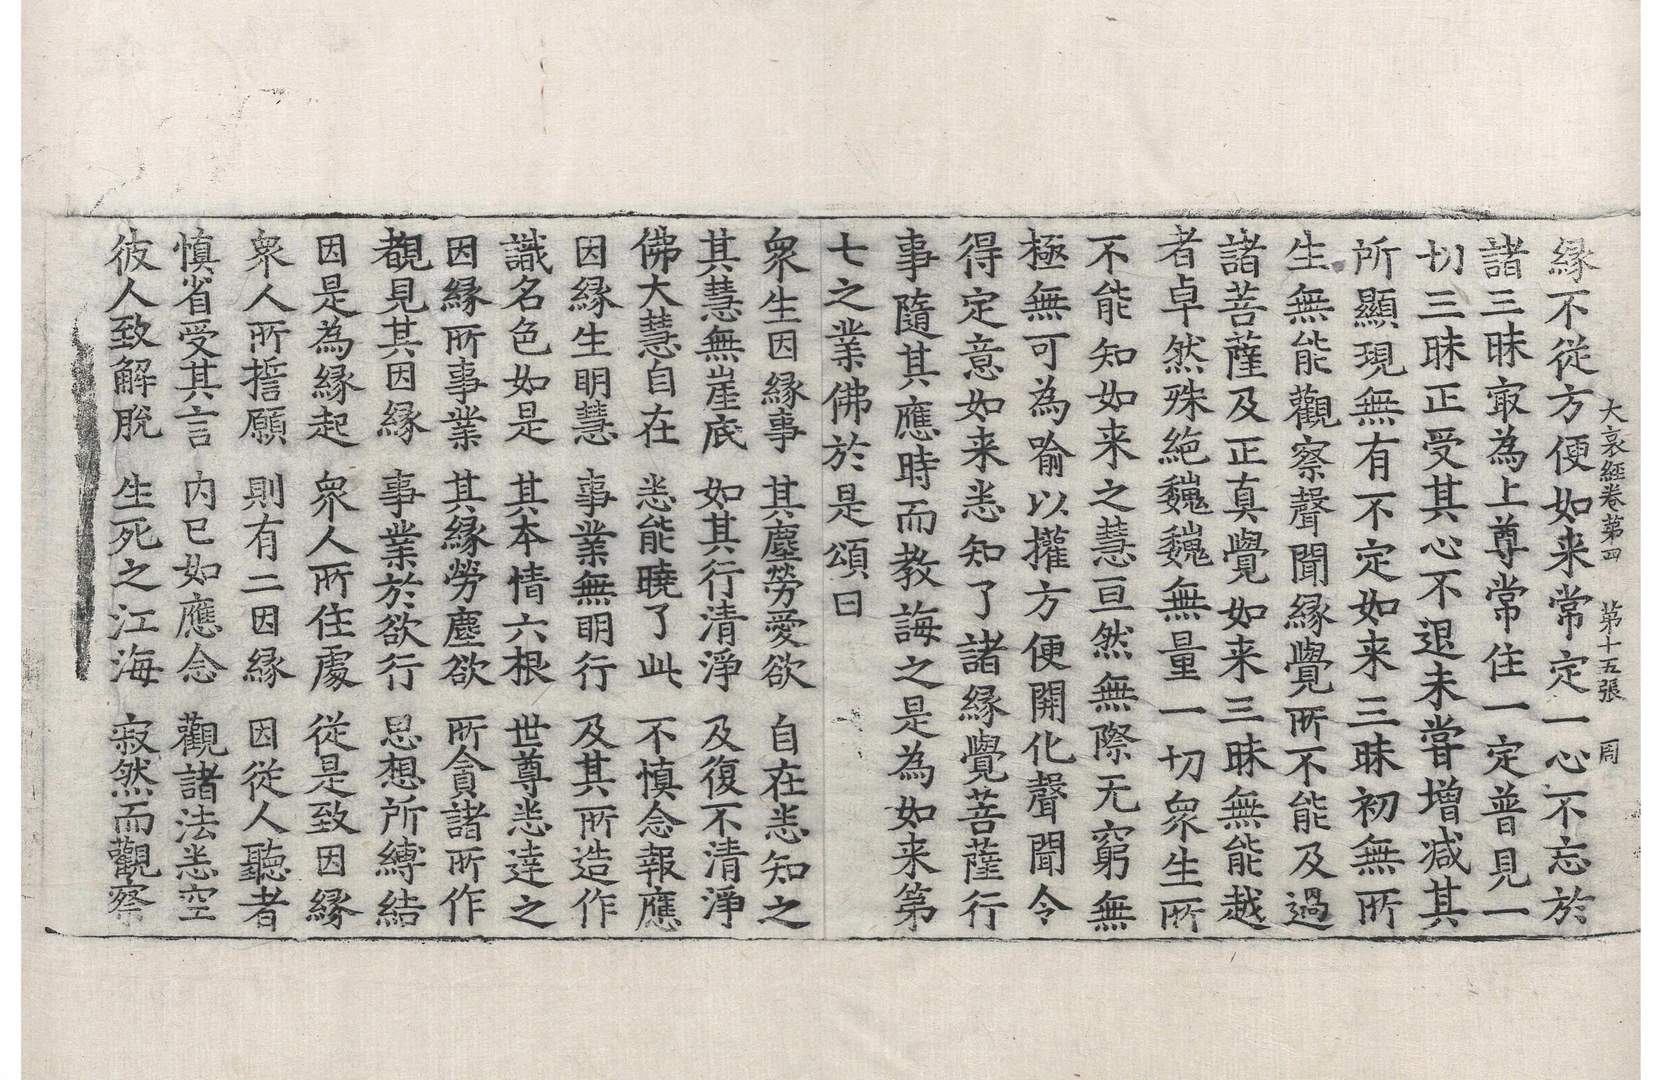 大哀經卷第四　第十五張　周
緣不從方便如来常定一心不忘於
諸三昧㝡為上尊常住一定普見一
切三昧正受其心不退未甞增减其
所顯現無有不定如来三昧初無所
生無能觀察聲聞緣覺所不能及過
諸菩薩及正真覺如来三昧無能越
者卓然殊絶巍巍無量一切衆生所
不能知如来之慧亘然無際无窮無
極無可為喻以攉方便開化聲聞令
得定意如来悉知了諸緣覺菩薩行
事隨其應時而教誨之是為如来第
七之業佛於是頌曰
衆生因緣事　其塵勞愛欲　自在悉知之
其慧無崖底　如其行清淨　及復不清淨
佛大慧自在　悉能曉了此　不慎念報應
因緣生明慧　事業無明行　及其所造作
識名色如是　其本情六根　世尊悉達之
因緣所事業　其緣勞塵欲　所貪諸所作
覩見其因緣　事業於欲行　思想所縛結
因是為緣起　衆人所住處　從是致因緣
衆人所誓願　則有二因緣　因從人聽者
慎省受其言　内已如應念　觀諸法悉空
彼人致解脫　生死之江海　寂然而觀察